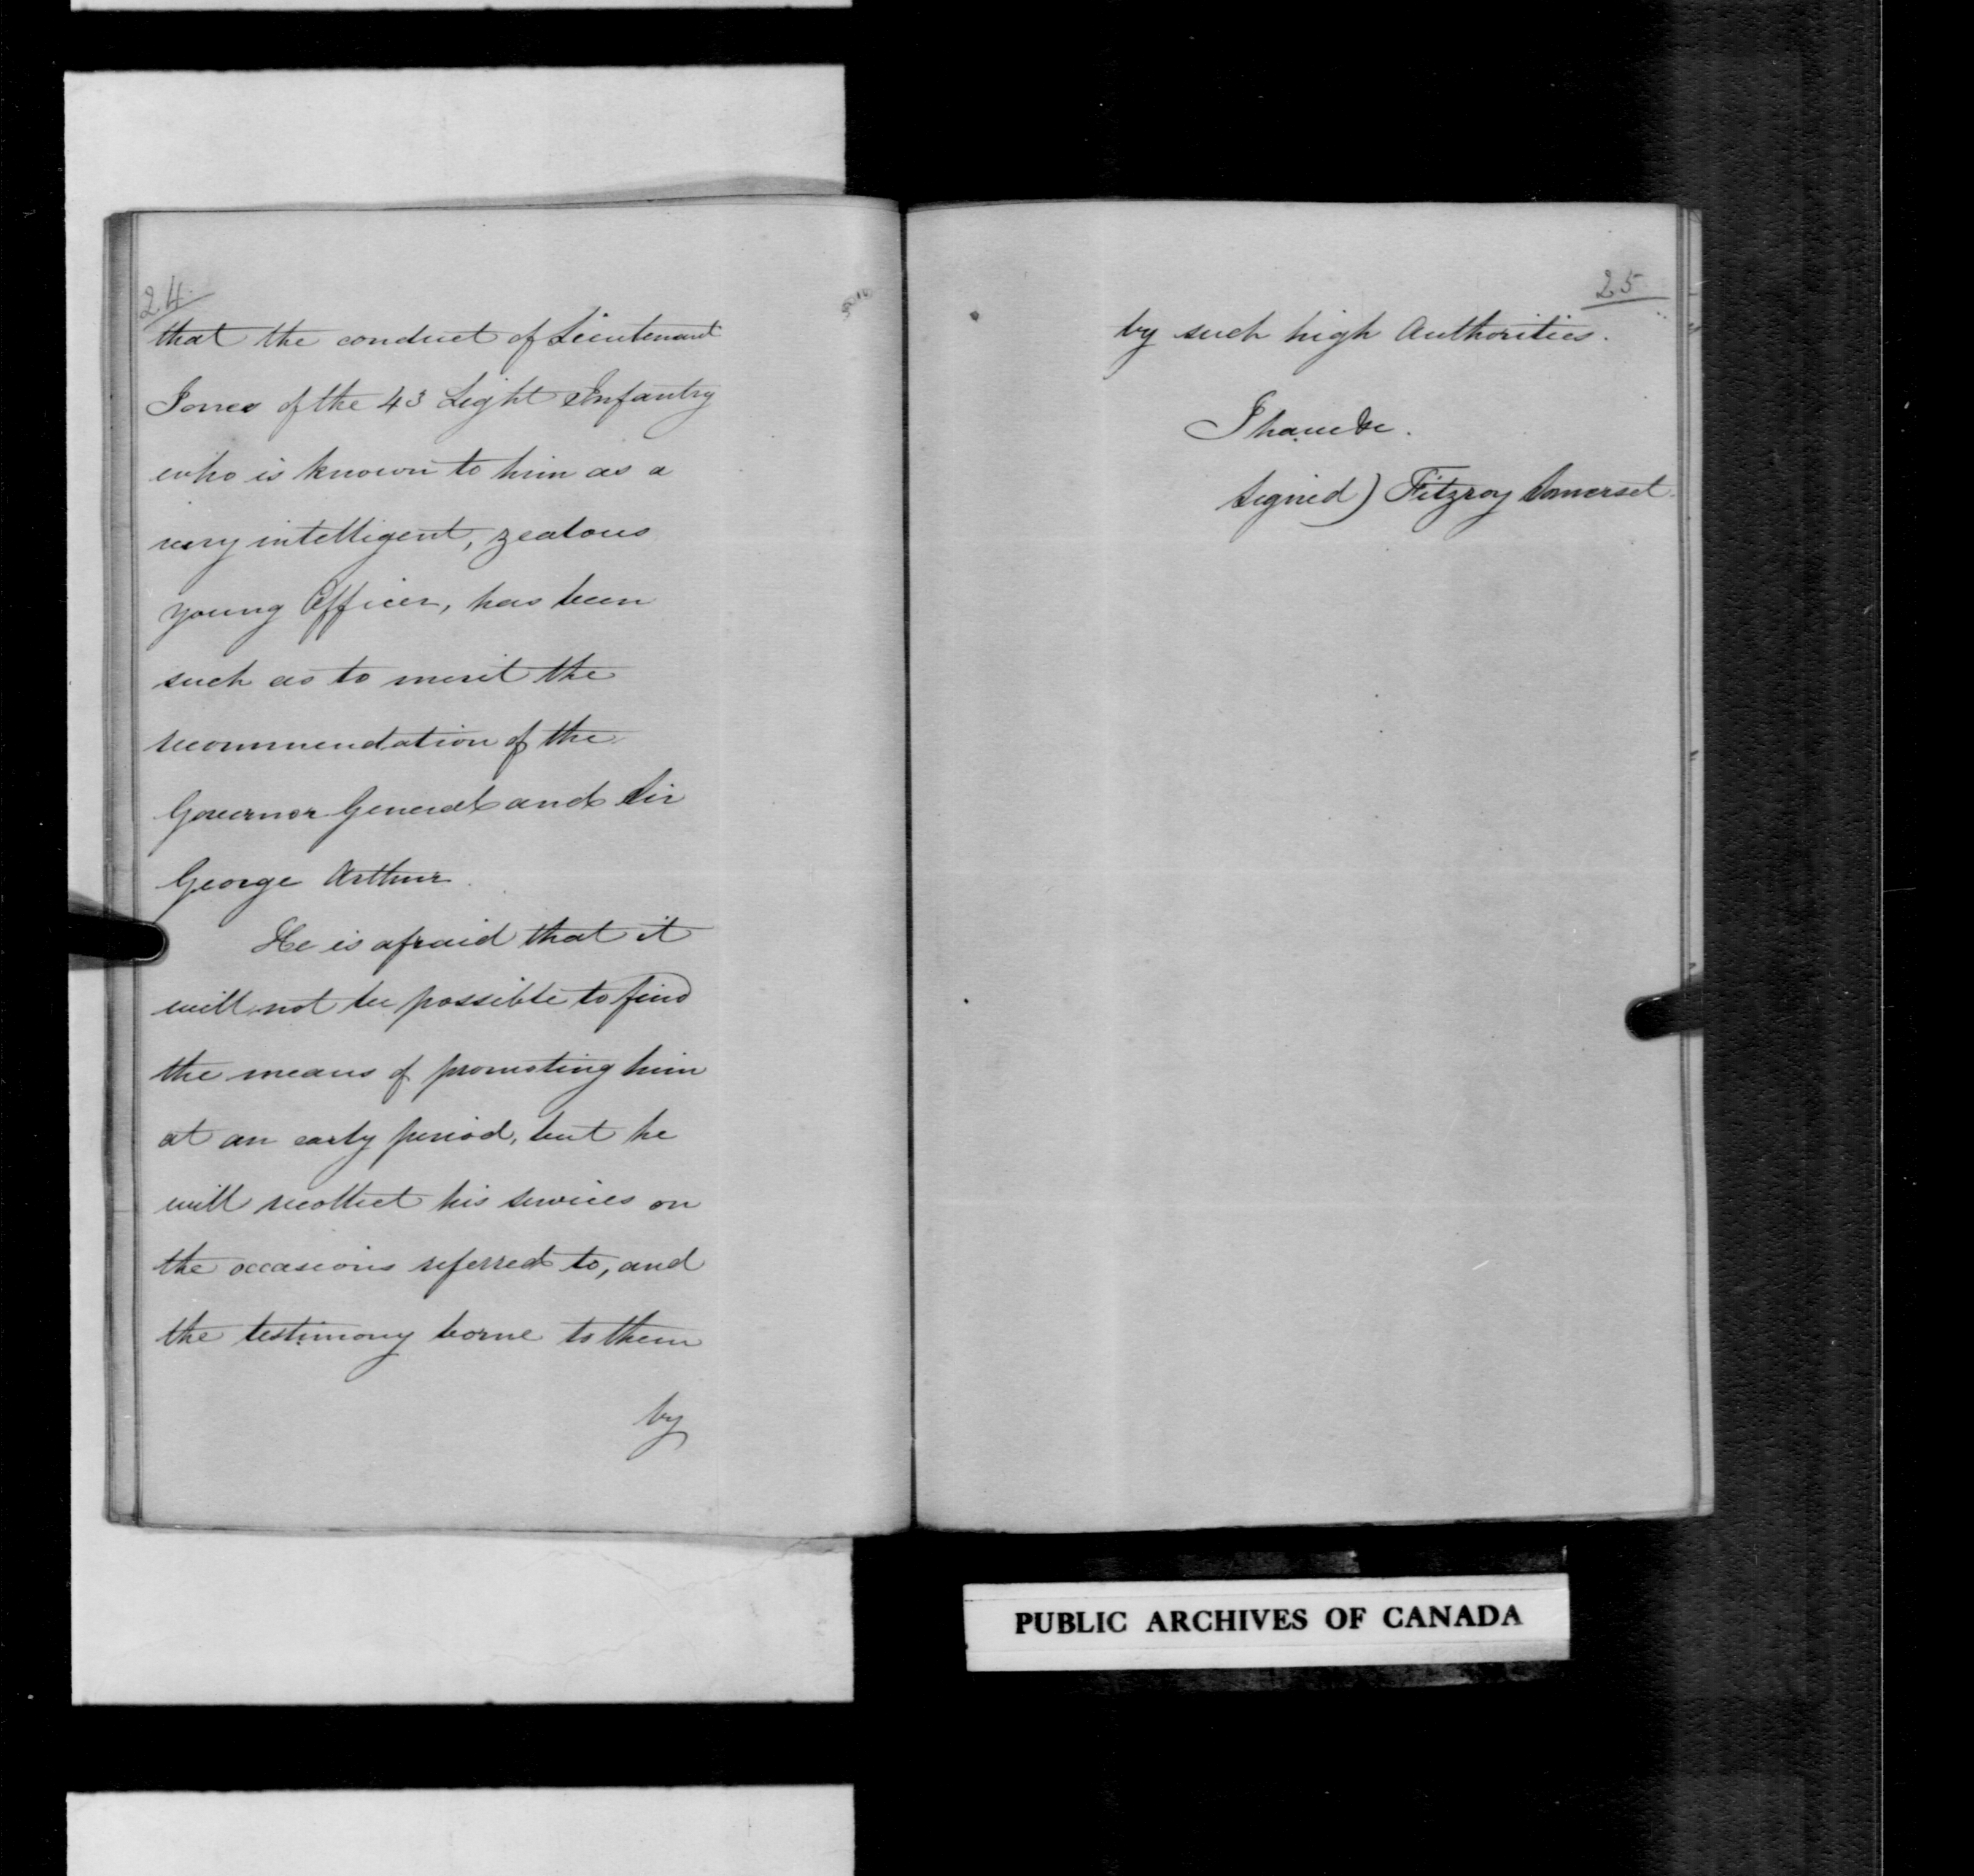 24
that the conduct of Lieutenant
Jones of the 43 Light Infantry
who is known to him as a
very intelligent, zealous
young Officer, has been
such as to merit the
recommendation of the
Governor General and Sir
George Arthur.
He is afraid that it
will not be possible to find
the means of promoting him
at an early period, but he
will recollect his services on
the occasions referred to, and
the testimony borne to them
by
25
by such high Authorities.
I have &c.
Signed) Fitzroy Somerset.
PUBLIC ARCHIVES OF CANADA